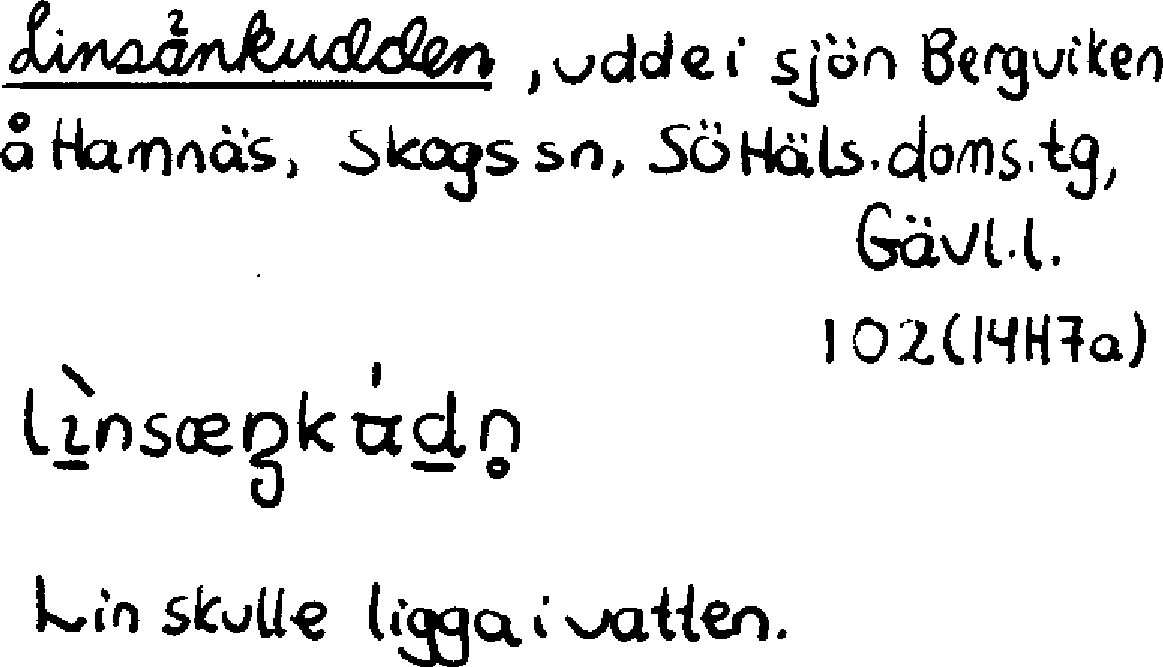 Linsänkudden, udde i sjön Bergviken
å Hamnäs, Skogs sn, SöHäls.doms.tg,
Gävl.l.
102(14H7a)
lɪ̠̀nsæŋkɑ́d̠n̥
Lin skulle ligga i vatten.